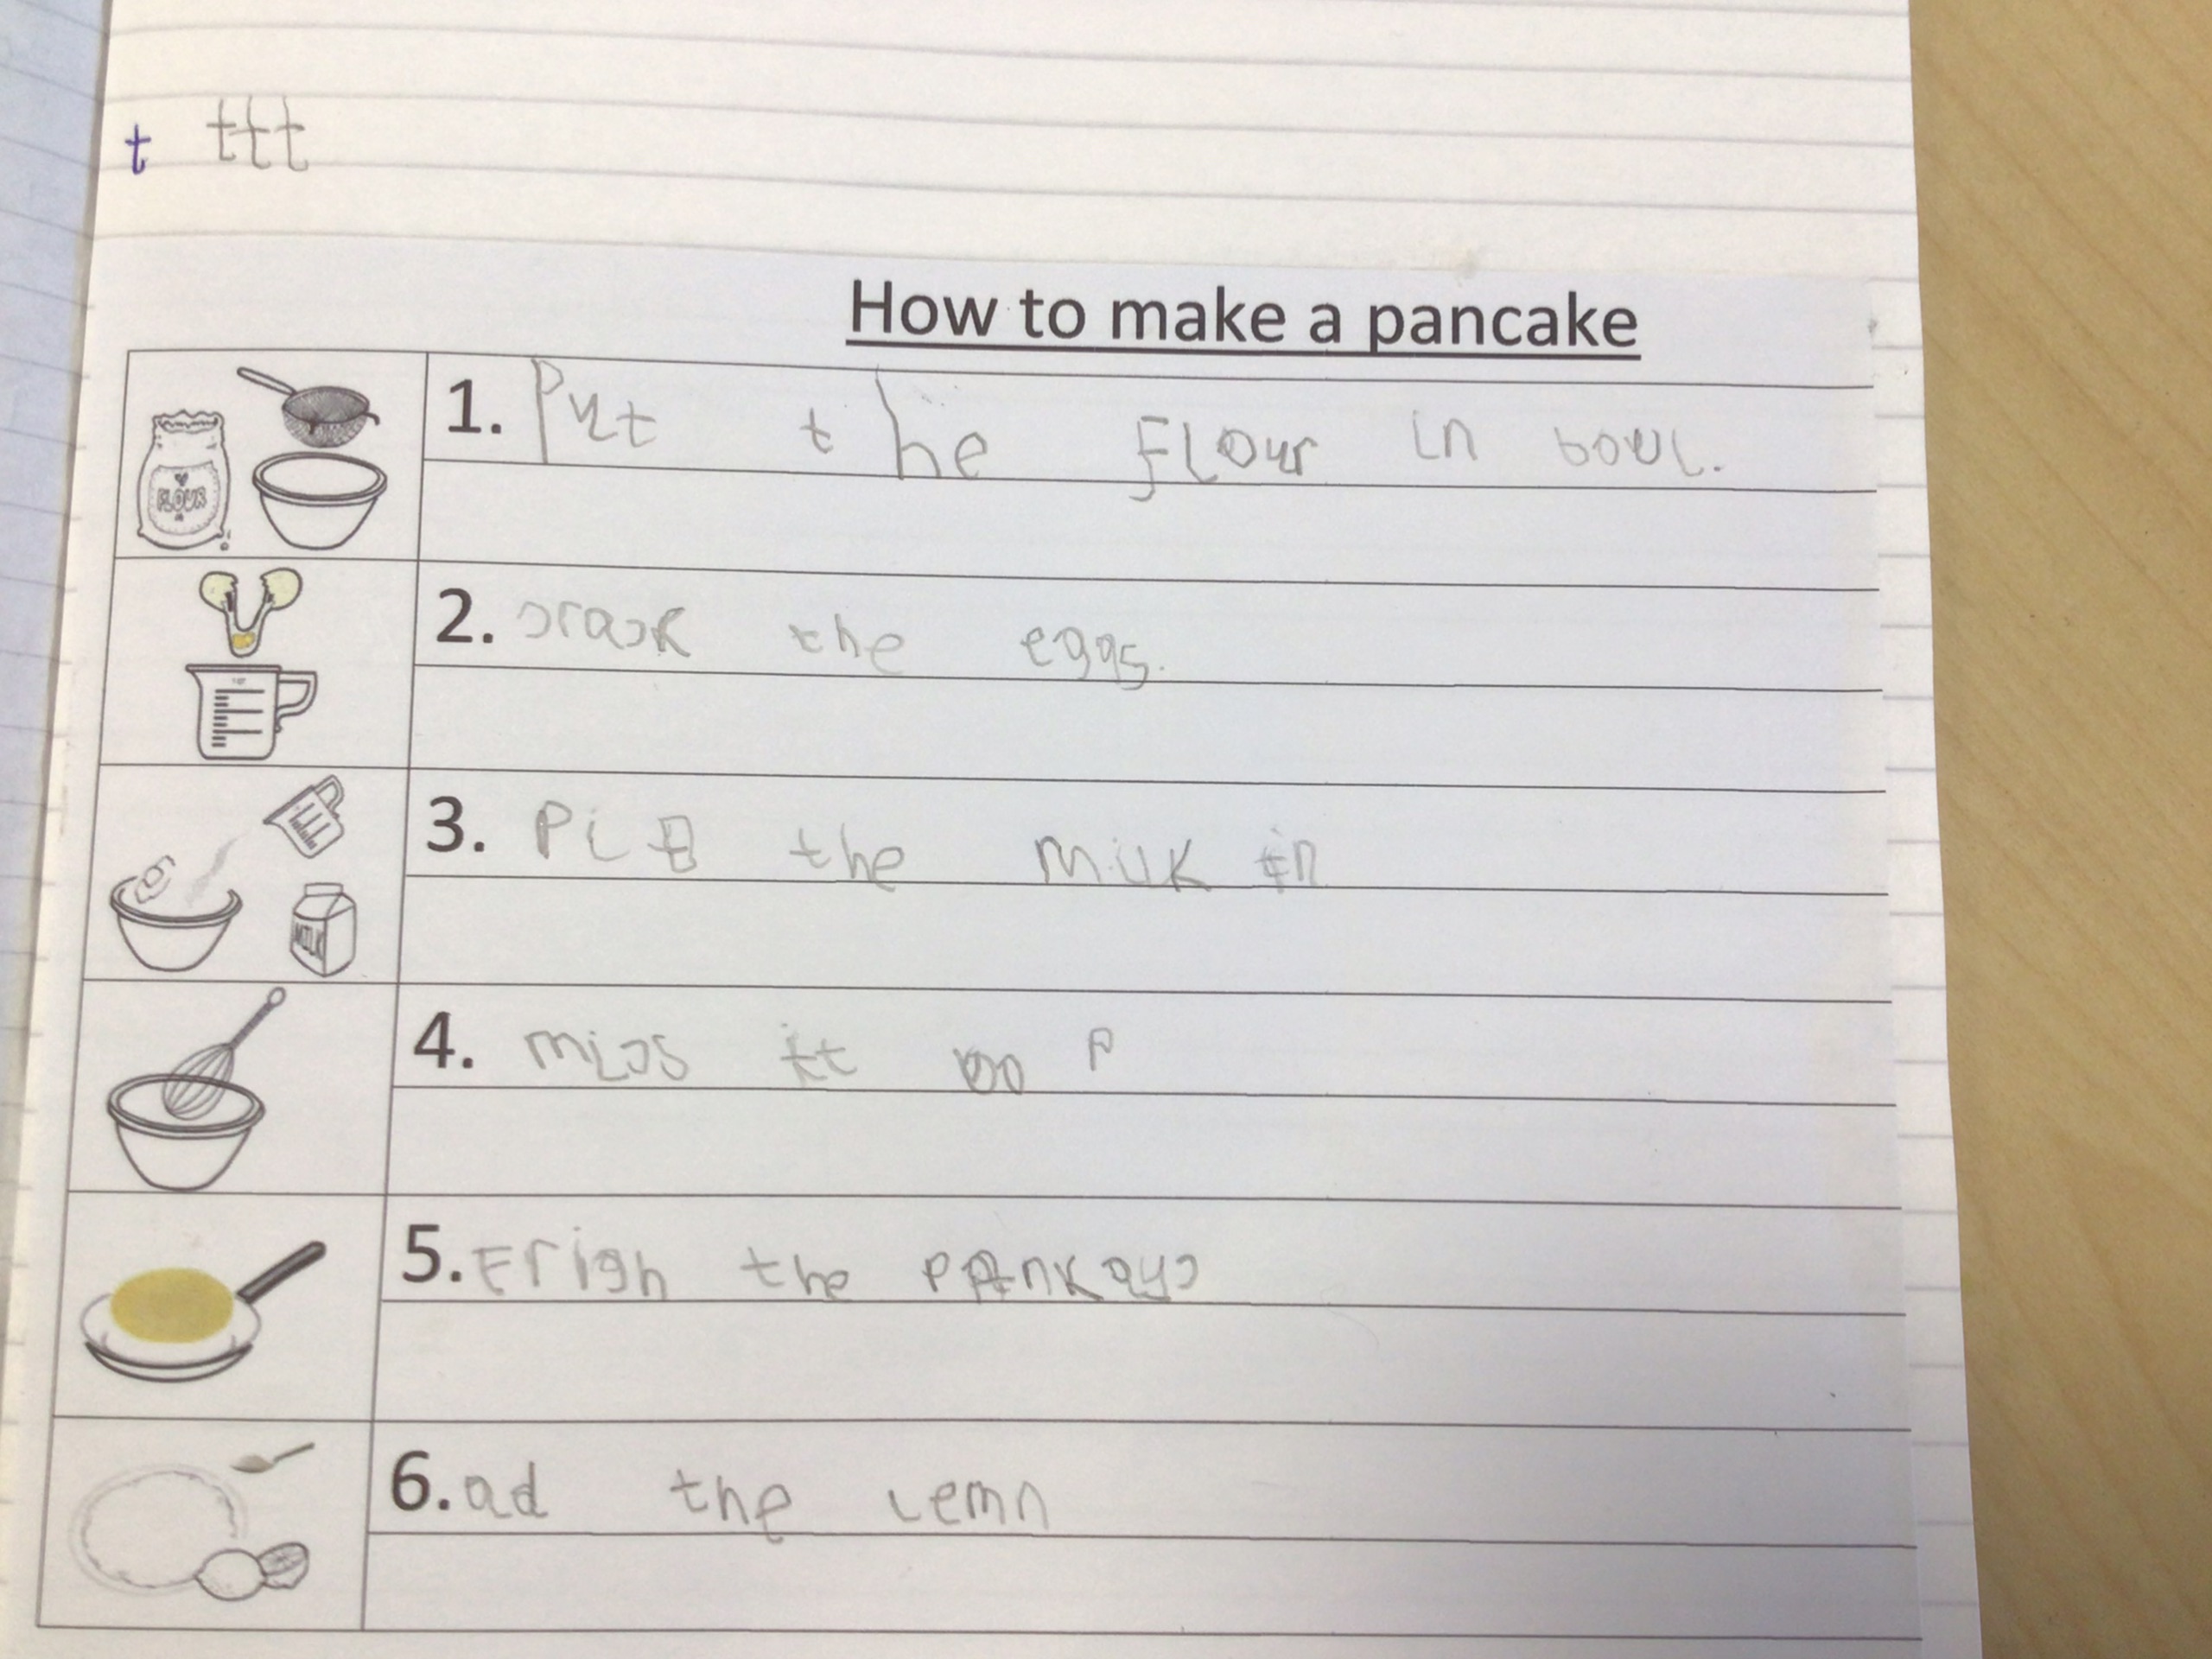 t ttt
How to make a pancake
FLOUR
1. Put the Flour in bowl.
2. crack the eggs.
3. the milk in
MILK
4. mics it
5. Frigh the pankayc
6. ad the lemn